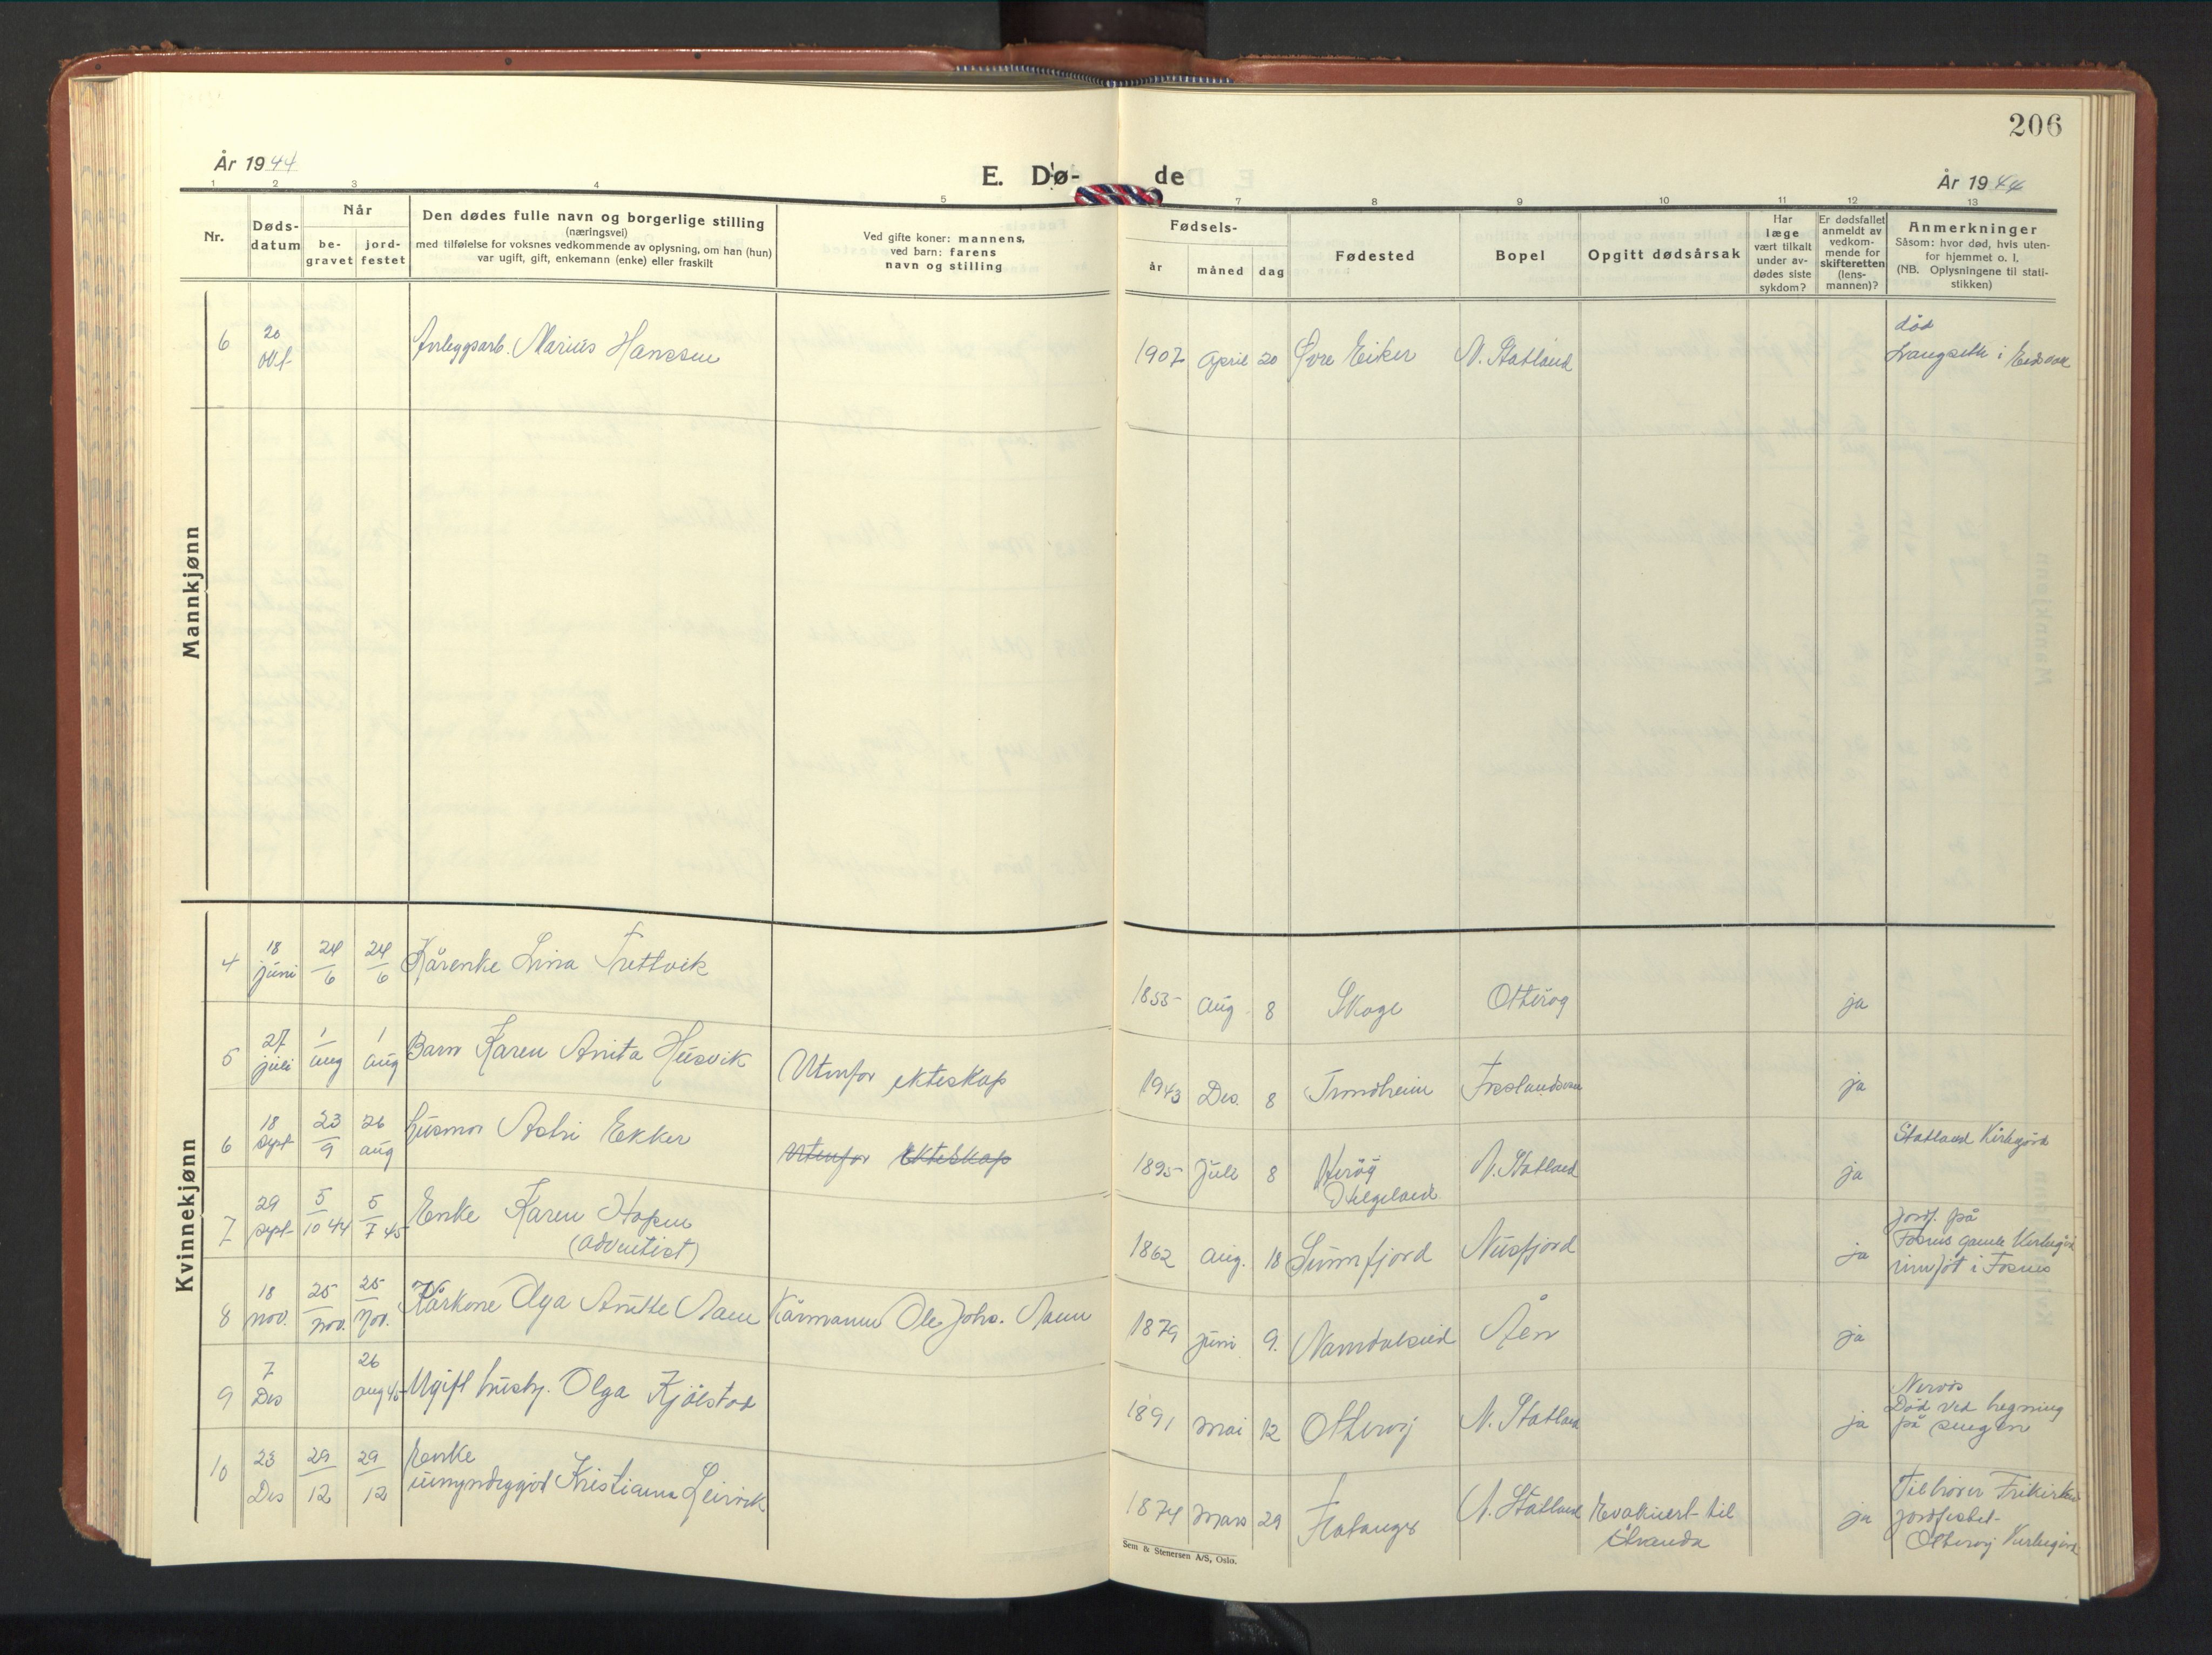 206
År 1944
E. Dø-
de
År 1944
1 2 3 4 5 7 8 9 10 11 12 13
Nr.
Døds-
datum
Når
be-
gravet
jord-
festet
Den dødes fulle navn og borgerlige stilling
(næringsvei)
med tilføielse for voksnes vedkommende av oplysning, om han (hun)
var ugift, gift, enkemann (enke) eller fraskilt
Ved gifte koner: mannens,
ved barn: farens
navn og stilling
Fødsels-
år måned dag
Fødested
Bopel
Opgitt dødsårsak
Har
læge
vært tilkalt
under av-
dødes siste
sykdom?
Er dødsfallet
anmeldt av
vedkom-
mende for
skifteretten
(lens-
mannen)?
Anmerkninger
Såsom: hvor død, hvis uten-
for hjemmet o. l.
(NB. Oplysningene til stati-
stikken)
Mannkjønn
6 20 Okt Anleggsarb. Marius Hanssen 1907 April 20 Øvre Eiker N. Statland død
i
Kvinnekjønn
4 18 juni 24/6 24/6 Kårenke Lina Trettvik 1853 Aug 8 Skage Otterøy ja
5 27 juli 1 aug 1 aug Barn Karen Anita Husvik Utenfor ekteskap 1943 Des. 8 Trondheim ja
6 18 sept 23/9 26 aug husmor Astri Ekker Utenfor Ekteskap 1895 Juli 8 Herøy
Helgeland N. Statland ja Statland Kirkegård
7 29 sept 5/10 44 5/7 45 Enke Karen Hopen
(adventist) 1862 Aug. 18 Sunnfjord Nusfjord ja jordf. på
Fosnes gamle Kirkegård
i Fosnes
8 18 nov. 25 nov. 25 nov. Kårkone Olga Anette Aaen Kårmann Ole Johs. Aaen 1879 juni 9. Namdalseid Åen ja
9 7 Des 26 aug 45 Ugift husby. Olga Kjølstad 1891 mai 12 Otterøy N. Statland ja Nervøs
Død ved hegning
på sengen
10 23 Des 29/12 29/12 Enke
Kristianna Leirvik 1874 Mars 29 Flatanger N. Statland Evakuert til
Stranda ja Tilhører Frikirken
jordfestet
Otterøy Kirkegård
Sem & Stenersen A/S, Oslo.